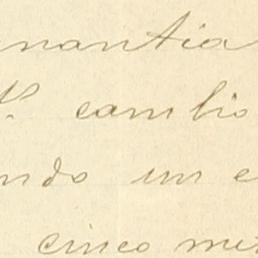 nantia
cambio
ndo un e
cinco me